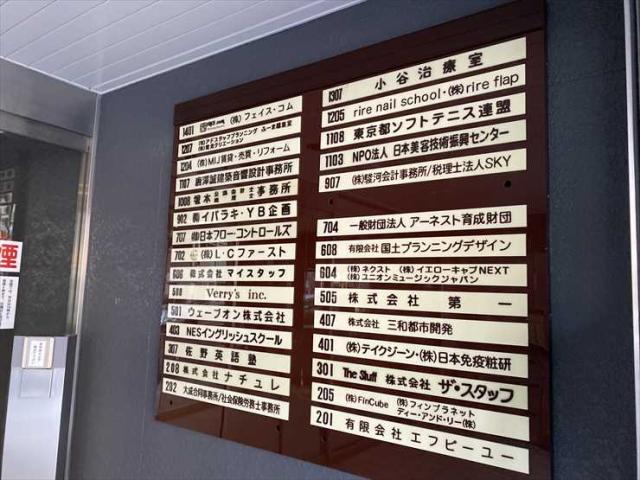 1401 (株)フェイス・コム
1207
1204 (株)MIJ賃貸・売買・リフォーム
1107 唐澤誠建築音響設計事務所
1008 事務所
902 (有)イバラキ・YB企画
707 (株)日本フロー・コントロールズ
702 (株)L・Cファースト
606 株式会社 マイスタッフ
508 Verry's inc.
501 ウェーブオン株式会社
403 NESイングリッシュスクール
307 佐野英語塾
208 株式会社ナチュレ
202 大成合同事務所/社会保険労務士事務所
1307 小谷治療室
1205 rire nail school・(株)rire flap
1108 東京都ソフトテニス連盟
1103 NPO法人 日本美容技術振興センター
907 (株)駿河会計事務所/税理士法人SKY
704 一般財団法人 アーネスト育成財団
608 有限会社 国土プランニングデザイン
604 (株)ネクスト (株)イエローキャブNEXT
(株)ユニオンミュージックジャパン
505 株式会社 第一
407 株式会社 三和都市開発
401 (株)テイクジーン・(株)日本免疫粧研
301 The Stuff 株式会社 ザ・スタッフ
205 (株)FinCube (株)フィンプラネット
ディー・アンド・リー(株)
201 有限会社エフピーユー
煙